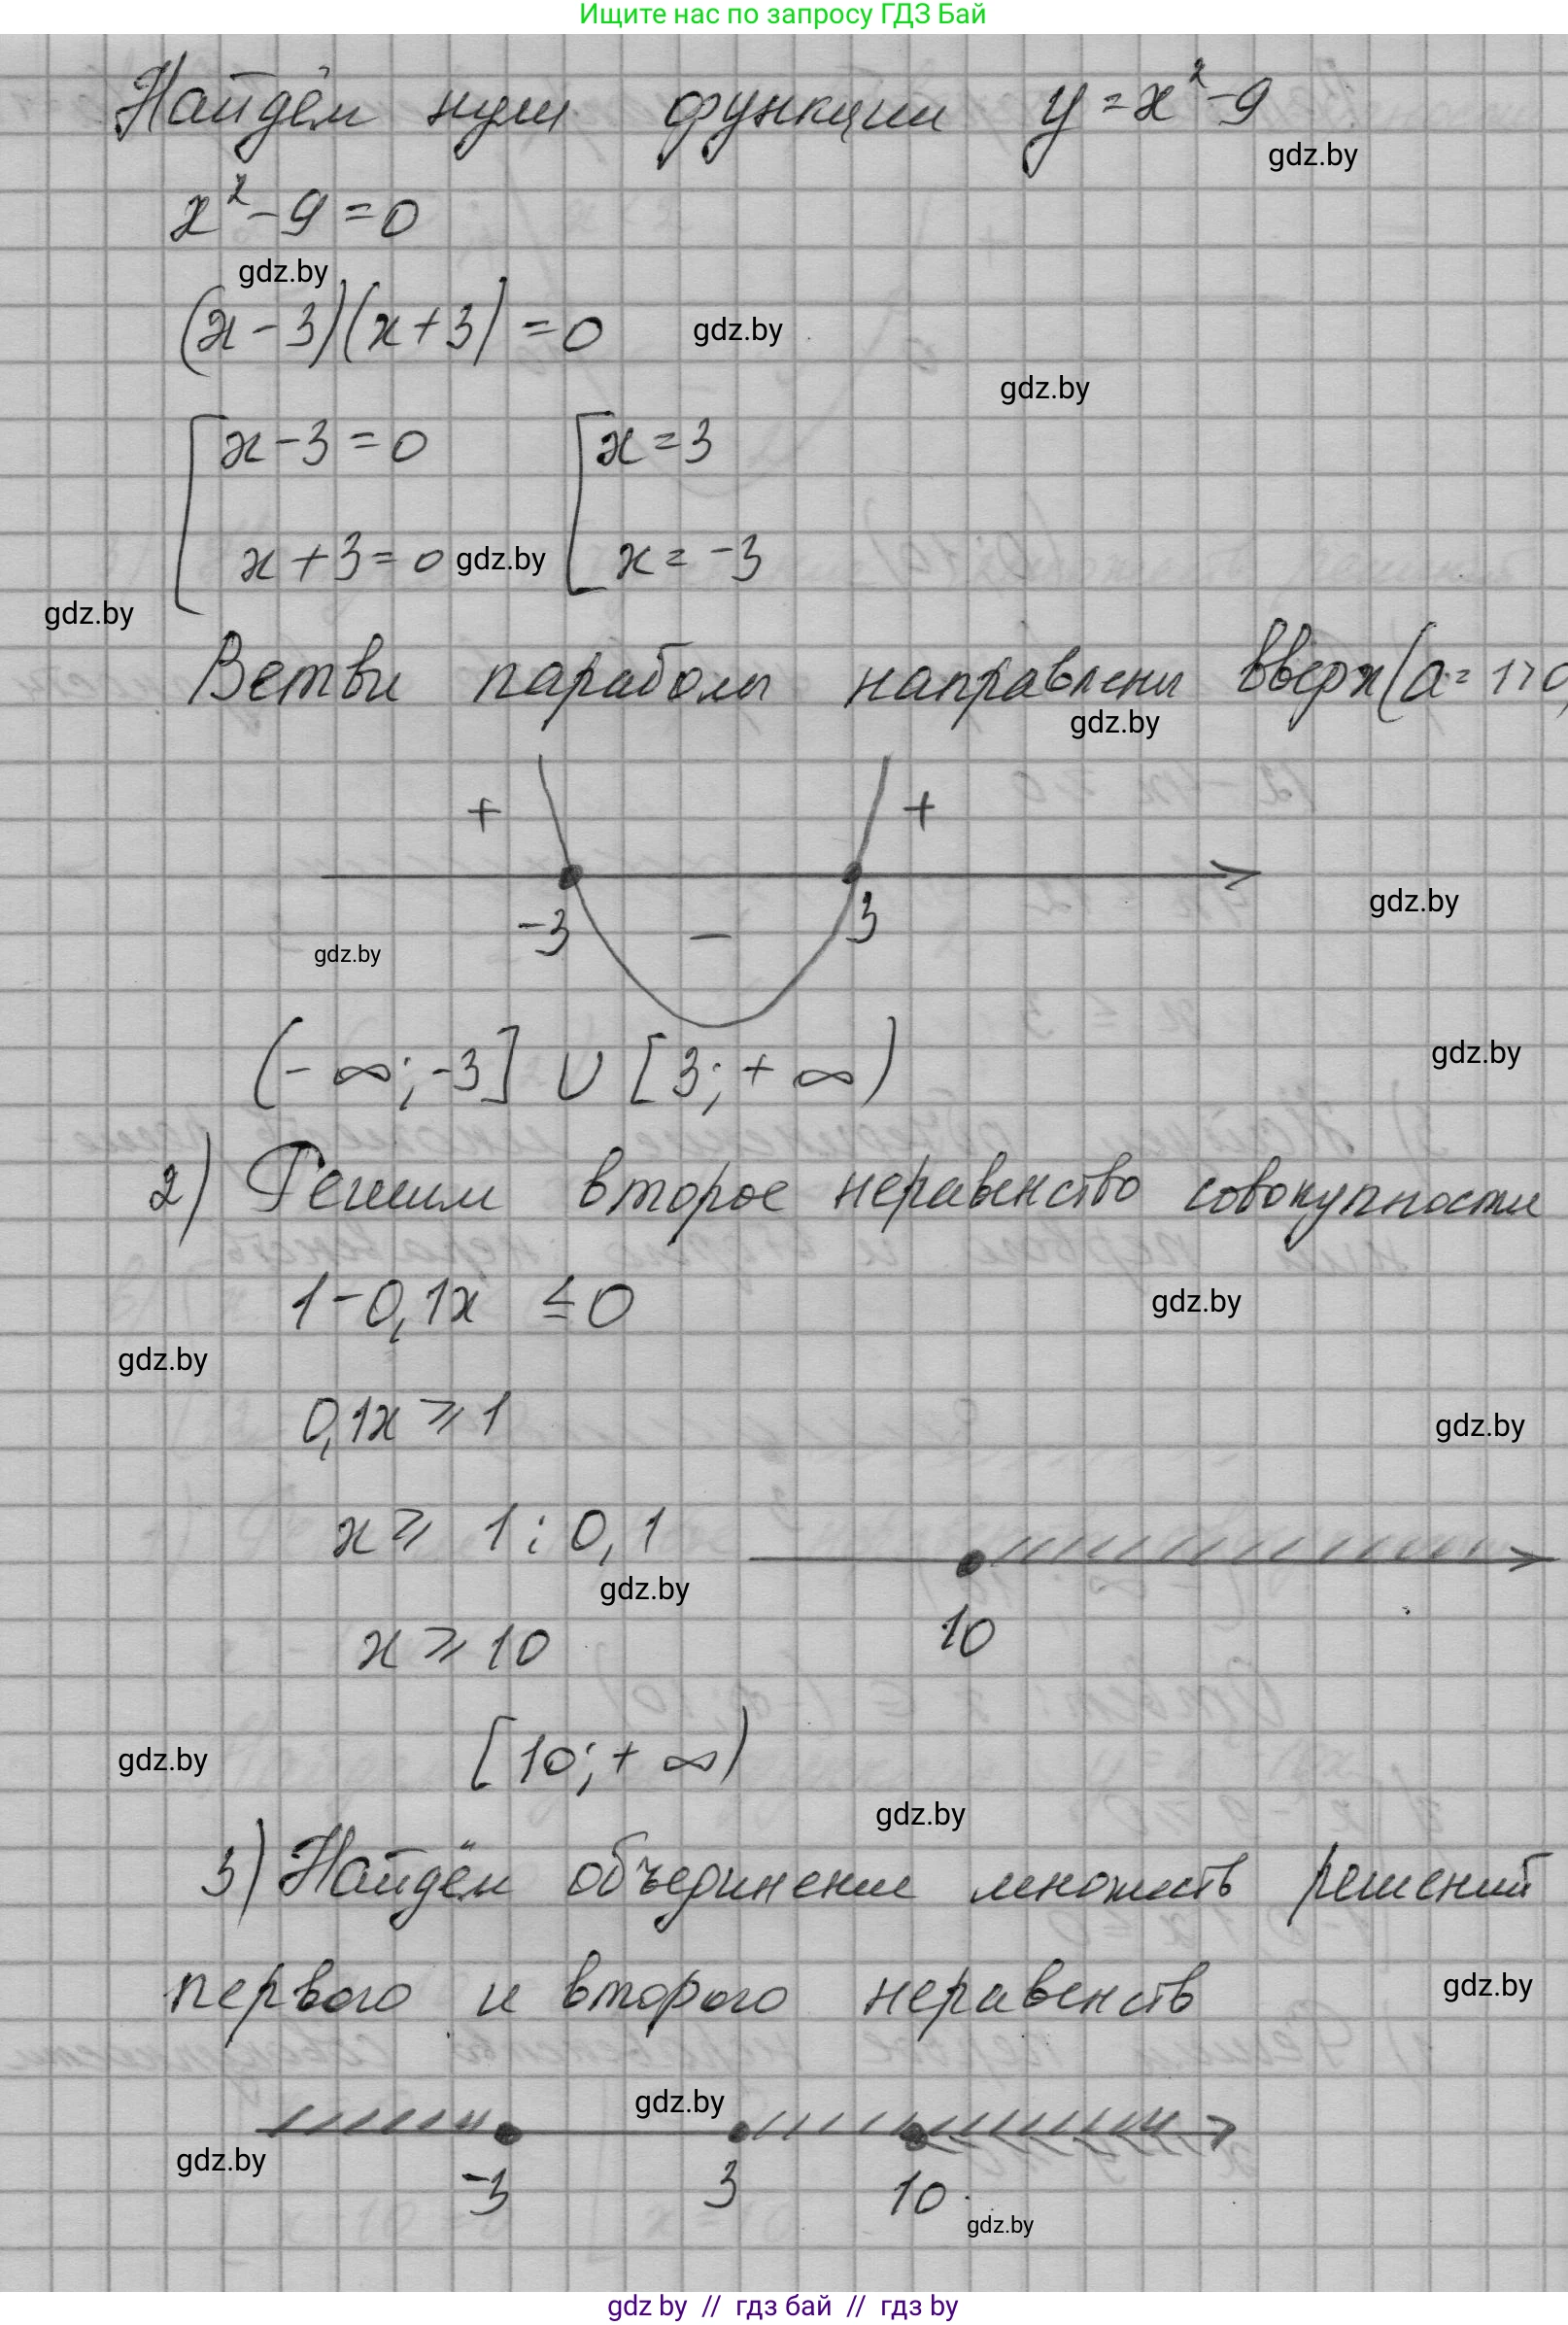 Ищите нас по запросу ГДЗ Бай
Найдём нули функции y = x² - 9
gdz.by
x² - 9 = 0
gdz.by
(x - 3)(x + 3) = 0
gdz.by
gdz.by
x - 3 = 0 x = 3
x + 3 = 0 gdz.by x = -3
gdz.by
Ветви параболы направлены вверх (a = 1 > 0)
gdz.by
+ +
gdz.by
-3 - 3
gdz.by
(-∞; -3] ∪ [3; +∞)
gdz.by
2) Решим второе неравенство совокупности
1 - 0,1x ≤ 0
gdz.by
gdz.by
0,1x ⩾ 1
gdz.by
x ⩾ 1 : 0,1
gdz.by
10
x ⩾ 10
[10; +∞)
gdz.by
gdz.by
3) Найдём объединение множеств решений
первого и второго неравенств
gdz.by
gdz.by
gdz.by
-3 3 10
gdz.by
gdz by // гдз бай // гдз by